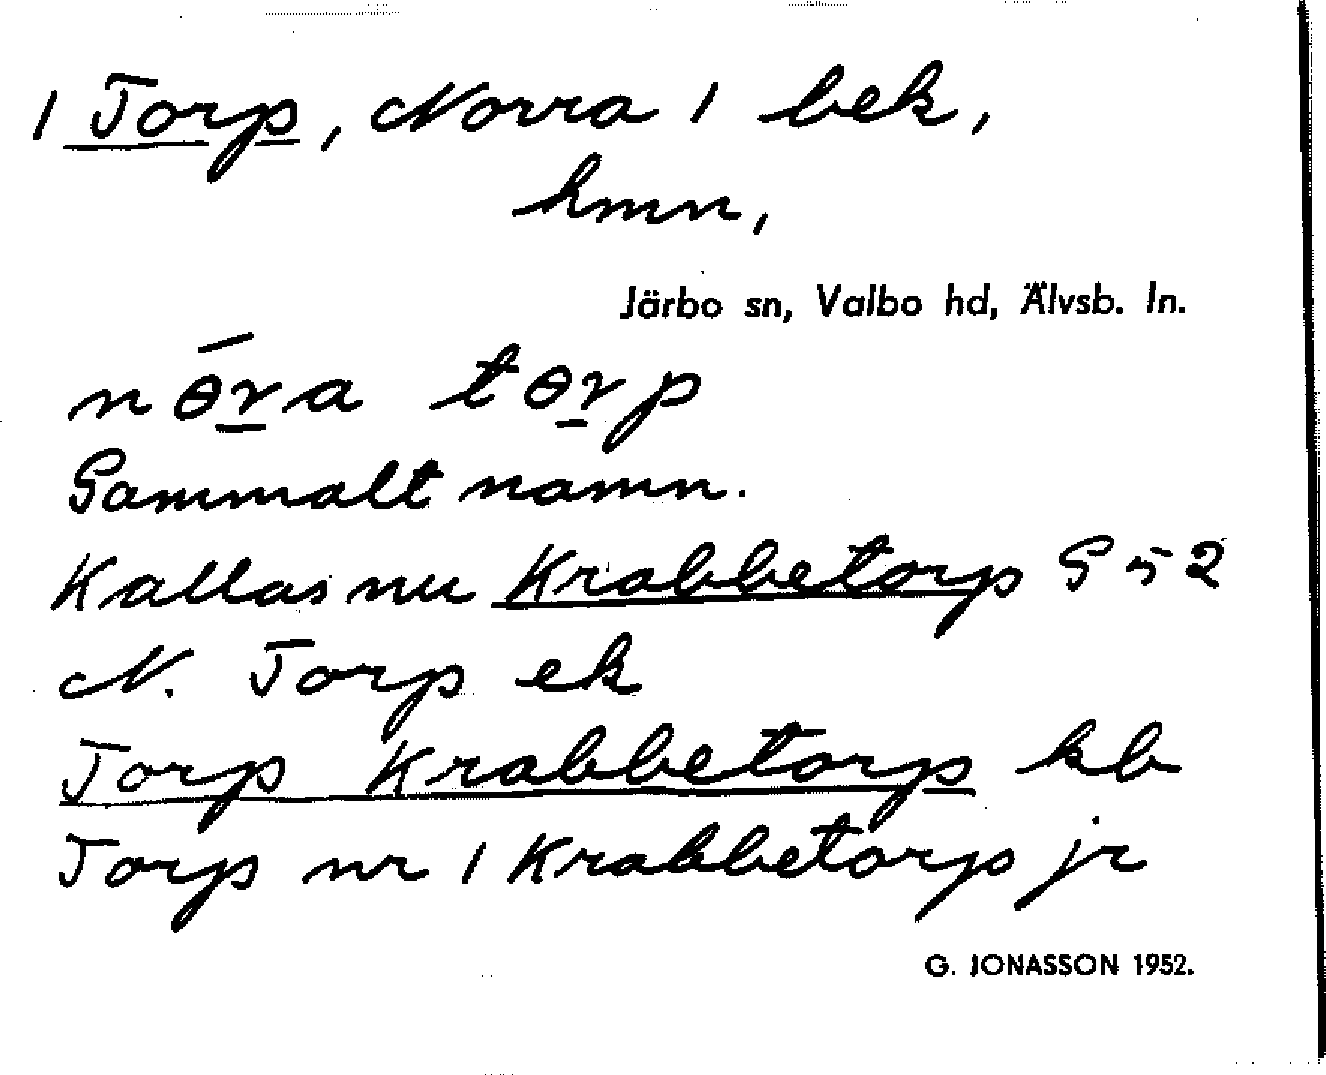 1 Torp, Norra 1 bek,
hmn,
Järbo sn, Valbo hd, Älvsb. ln.
nɵ́ra tɵrp
Gammalt namn.
Kallas nu Krabbetorp G 52
N. Torp ek
Torp Krabbetorp kb
Torp nr 1 Krabbetorp jr
G. JONASSON 1952.